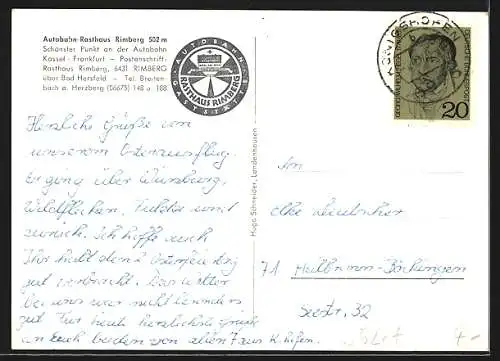 Autobahn-Rasthaus Rimberg 502 m
Schönster Punkt an der Autobahn
Kassel - Frankfurt – Postanschrift:
Rasthaus Rimberg, 6431 RIMBERG
über Bad Hersfeld – Tel. Breiten-
bach a. Herzberg (06675) 148 u. 188
AUTOBAHN
RASTHAUS RIMBERG
GASTSTÄTTE
KÖNIGSHOFEN
DEUTSCHE BUNDESPOST
20
Herzliche Grüße von
unserem Osterausflug.
Er ging über Würzburg,
Wildflecken, Fulda und
zurück. Ich hoffe auch
Ihr habt den 2. Osterfeiertag
gut verbracht. Das Wetter
bei uns war nicht besonders
gut. Für heute herzlichste Grüße
an Euch beiden von allen aus K.hofen.
Hugo Schneider, Landenhausen
An
Elke
71 Heilbronn-Böckingen
Seestr. 32